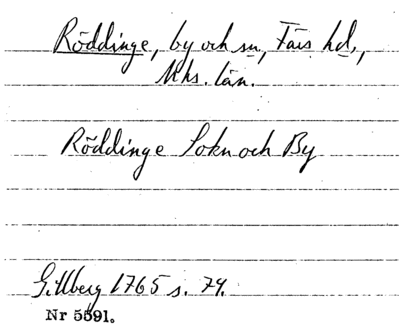 Röddinge, by och sn, Färs hd.,
Mhs. län.
Röddinge Sokn och By
Gillberg 1765 s. 79.
Nr 5591.